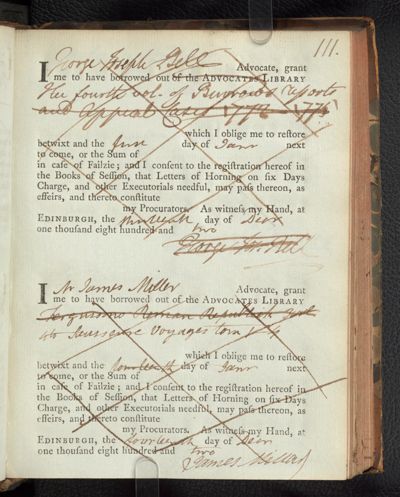 111.
I George Joseph Bell Advocate, grant
me to have borrowed out of the ADVOCATES LIBRARY
the fourth vol. of Burrows reports
and Appeal Cases 1772 - 1775
which I oblige me to restore
betwixt and the day of Janr next
to come, or the Sum of
in case of Failzie; and I consent to the registration hereof in
the Books of Session, that Letters of Horning on six Days
Charge, and other Executorials needful, may pass thereon, as
effeirs, and thereto constitute
my Procurators. As witness my Hand, at
EDINBURGH, the thirteenth day of Decr
one thousand eight hundred and two
George Jos. Bell
I Mr James Miller Advocate, grant
me to have borrowed out of the ADVOCATES LIBRARY
Fergusson's Roman Republick
Voyages tom
which I oblige me to restore
betwixt and the fourteenth day of Janr next
to come, or the Sum of
in case of Failzie; and I consent to the registration hereof in
the Books of Session, that Letters of Horning on six Days
Charge, and other Executorials needful, may pass thereon, as
effeirs, and thereto constitute
my Procurators. As witness my Hand, at
EDINBURGH, the fourteenth day of Decr
one thousand eight hundred and two
James Miller